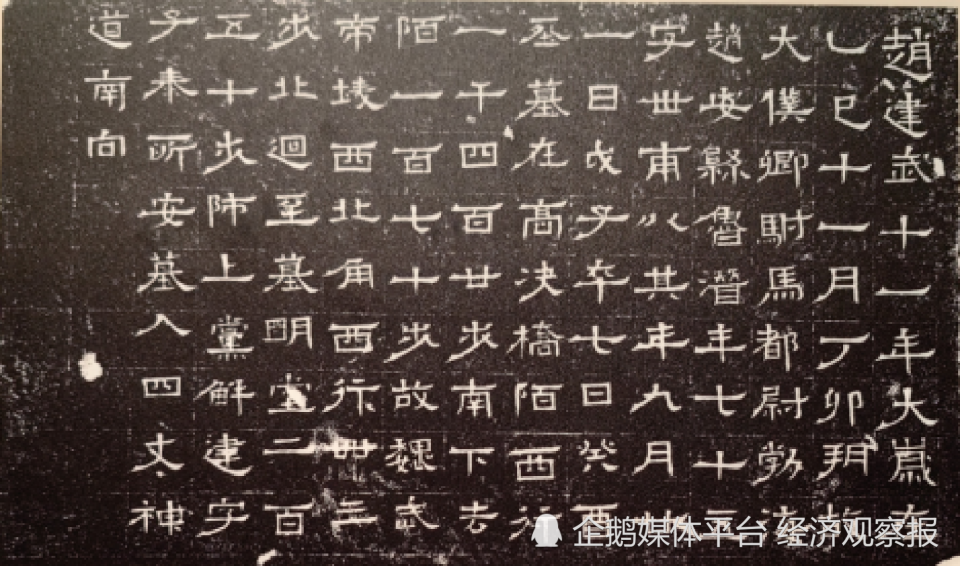 趙建武十一年大歲在
乙巳十一月丁卯朔故
大僕卿駙馬都尉勃海
趙安縣魯潛年七十五
字世甫以其年九月廿
一日戊子卒七日癸酉
葬墓在高決橋陌西行
一千四百廿步南下去
陌一百七十步故魏武
帝陵西北角西行卌三
步北迴至墓明堂二百
五十步師上黨解建字
子泰所安墓入四丈神
道南向
企鹅媒体平台 经济观察报